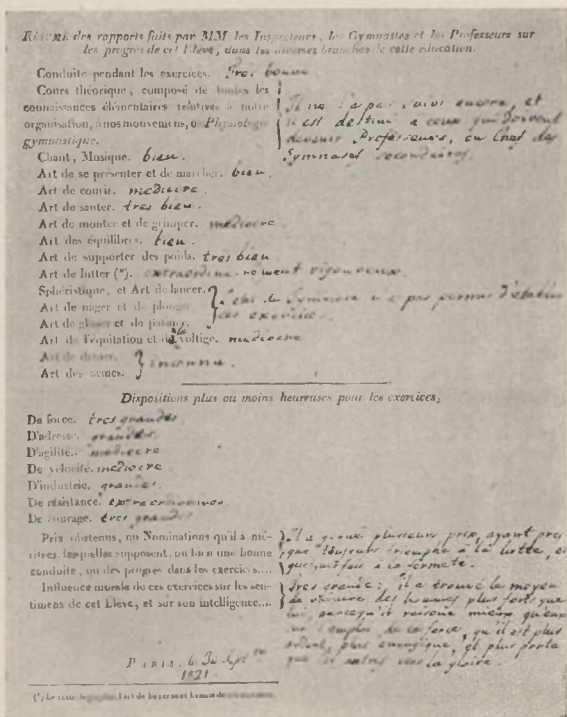 RÉSUMÉ des rapports faits par MM les Inspecteurs, les Gymnastes et les Professeurs sur
les progrès de cet Elève, dans les diverses branches de cette education.
Conduite pendant les exercices. Tres bonne
Cours théorique, composé de toutes les
connaissances élémentaires relatives à notre
organisation, à nos mouvemens, ou Physiologie
gymnastique.
Il ne l'a pas suivi encore, et
il est destiné a ceux qui doivent
devenir Professeurs, ou Chefs des
Gymnases secondaires.
Chant, Musique. bien.
Art de se présenter et de marcher. bien.
Art de courir. mediocre.
Art de sauter. tres bien.
Art de monter et de grimper. mediocre
Art des équilibres. bien.
Art de supporter des poids. tres bien
Art de lutter (*). extraordinairement vigoureux.
Sphéristique, et Art de lancer.
Art de nager et de plonger
Art de glisser et de patiner.
du Gymnase n'a pas permis d'etablir
ces exercices.
Art de l'équitation et de la voltige. mediocre
Art de danser.
Art des armes.
inconnu.
Dispositions plus ou moins heureuses pour les exercices,
De force. tres grandes
D'adresse. grandes.
D'agilité. mediocre
De velocité. mediocre
D'industrie. grandes.
De résistance. extraordinaires.
De courage. tres grandes
Prix obtenus, ou Nominations qu'il a mé-
ritées, lesquelles supposent, ou bien une bonne
conduite, ou des progres dans les exercices....
Il a gagné plusieurs prix, ayant pres
que toujours triomphé à la lutte, et
quelquefois à la fermeté.
Influence morale de ces exercices sur les sen-
timens de cet Eleve, et sur son intelligence....
Tres grande: il a trouvé le moyen
de vaincre des hommes plus forts que
lui, parcequ'il raisonne mieux qu'eux
l'emploi de la force, qu'il est plus
ardent, plus energique, et plus porté
que les autres vers la gloire.
PARIS, le 30
1821.
(*) l'art de boxer sont bannis de